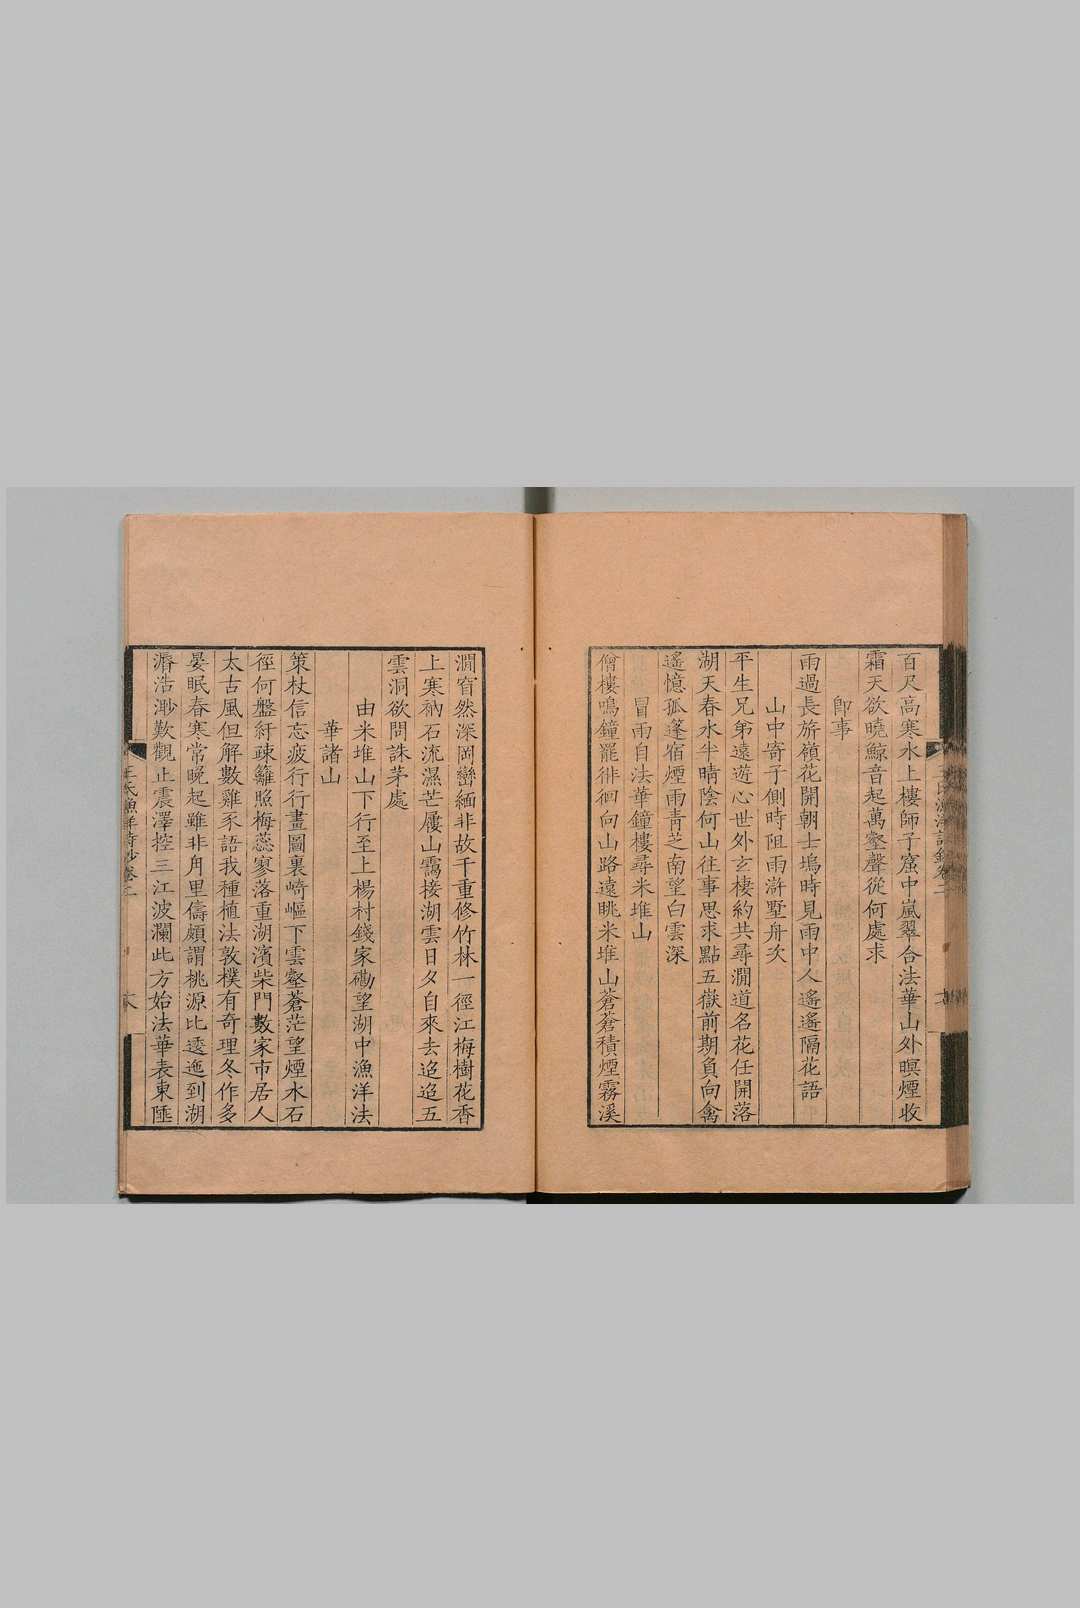 百尺高寒水上樓師子窟中嵐翠合法華山外暝煙收
霜天欲曉鯨音起萬壑聲從何處求
即事
雨過長旂嶺花開朝士塢時見雨中人遙遙隔花語
山中寄子側時阻雨滸墅舟次
平生兄弟遠遊心世外玄棲約共尋澗道名花任開落
湖天春水半晴陰何山往事思求點五嶽前期負向禽
遙憶孤篷宿煙雨青芝南望白雲深
冒雨自法華鐘樓尋米堆山
僧樓鳴鐘罷徘徊向山路遠眺米堆山蒼蒼積煙霧溪
澗窅然深岡巒緬非故千重修竹林一徑江梅樹花香
上寒衲石流濕芒屨山靄接湖雲日夕自來去迢迢五
雲洞欲問誅茅處
由米堆山下行至上楊村錢家磡望湖中漁洋法
華諸山
策杖信忘疲行行畫圖裏崎嶇下雲壑蒼茫望煙水石
徑何盤紆疎籬照梅蕊寥落重湖濱柴門數家市居人
太古風但解數雞豕語我種植法敦樸有奇理冬作多
晏眠春寒常晚起雖非甪里儔頗謂桃源比逶迤到湖
漘浩渺歎觀止震澤控三江波瀾此方始法華表東陲
王氏漁洋詩鈔卷二